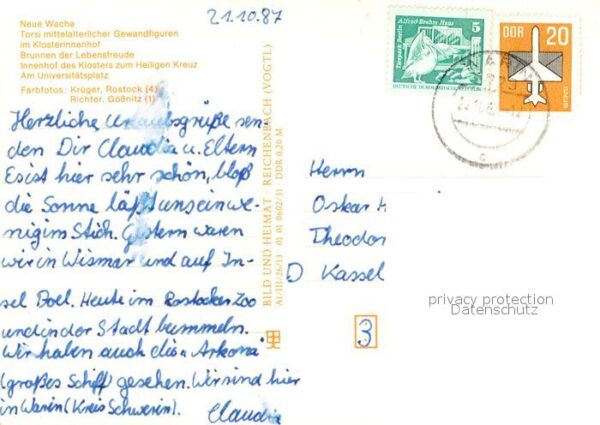 21.10.87
Neue Wache
Torsi mittelalterlicher Gewandfiguren
im Klosterinnenhof
Brunnen der Lebensfreude
Innenhof des Klosters zum Heiligen Kreuz
Am Universitätsplatz
Farbfotos: Krüger, Rostock (4)
Richter, Gößnitz (1)
Herzliche Urlaubsgrüße sen-
den Dir Claudia u. Eltern
Es ist hier sehr schön, bloß
die Sonne läßt uns ein we-
nig im Stich. Gestern waren
wir in Wismar und auf In-
sel Poel. Heute im Rostocker Zoo
und in der Stadt bummeln.
Wir haben auch die "Arkona"
(großes Schiff) gesehen. Wir sind hier
in Warin (Kreis Schwerin).
Claudia
BILD UND HEIMAT · REICHENBACH (VOGTL)
A1/III/26/13 01 01 0602/31 DDR 0,20 M
Alfred-Brehm-Haus
Tierpark Berlin
5
DDR 20
Herrn
Oskar H
Theodor
D Kassel
privacy protection
Datenschutz
3